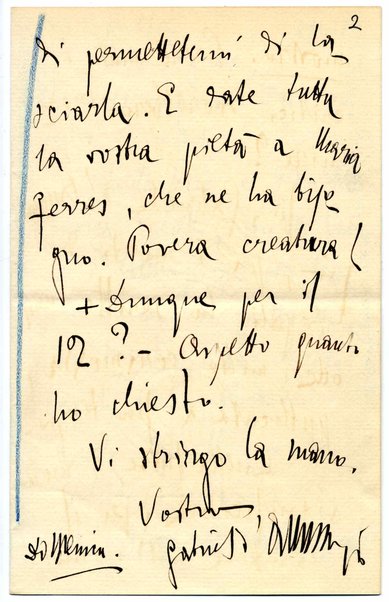 2
di permettetemi di la
sciarla. E date tutta
la vostra pietà a Maria
Ferres, che ne ha biso
gno. Povera creatura!
+ Dunque per il
12? – Aspetto quanto
ho chiesto.
Vi stringo la mano.
Vostro
Gabriele d'Annunzio